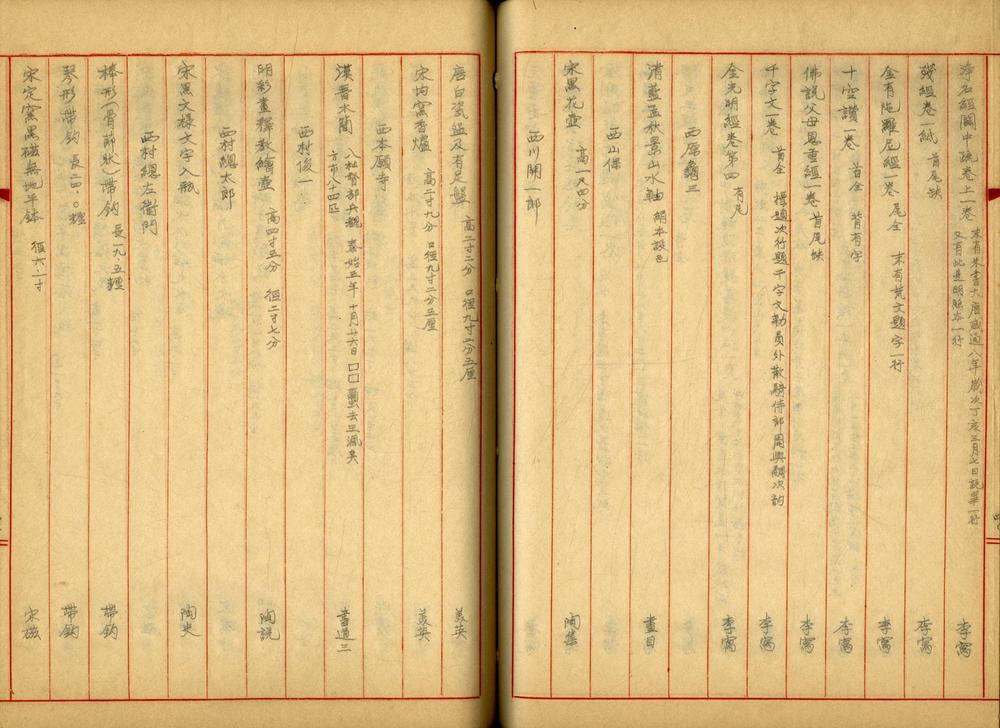 淨名經關中疏卷上一卷 末有朱書大唐咸通八年歲次丁亥三月七日説畢一行
又有比丘明照本一行 李寫
殘經卷一紙 首尾缺 李寫
金有陀羅尼經一卷 尾全 末有梵文題字一行 李寫
十空讚一卷 首全 背有字 李寫
佛説父母恩重經一卷 首尾缺 李寫
千字文一卷 首全 標題次行題千字文勅員外散騎侍郎周興嗣次韵 李寫
金光明經卷第四 有尾 李寫
西原龜三
清藍孟秋景山水軸 絹本設色 畫目
西山保
宋黑花壺 高一尺四分 陶集
西川開一郎
唐白瓷盌及有足盤 高二寸二分 口徑九寸二分五厘 菁英
宋均窯香爐 高二寸九分 口徑九寸二分五厘 菁英
西本願寺
漢晉木簡 泰始五年 十月廿六日 □□ 書道三
西村俊一
明彩畫釋教繪壺 高四寸五分 徑二寸七分 陶説
西村總太郎
宋黑文樣文字入瓶 陶史
西村總左衛門
棒形(骨節狀)帶鈎 長一九·五糎 帶鈎
琴形帶鈎 長二四·〇糎 帶鈎
宋定窯黑磁無地平鉢 徑六·一寸 宋磁